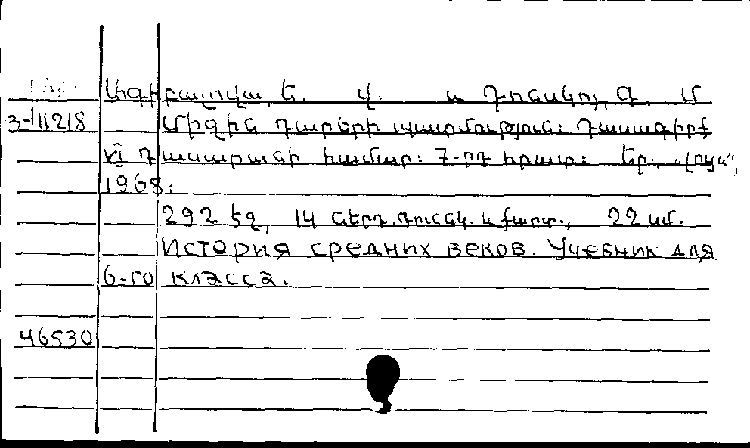 Ագիբալովա, Ե. Վ. և Դոնսկոյ, Գ. Մ
3-11218 Միջին դարերի պատմություն: Դասագիրք
VI դասարանի համար: 7-րդ հրատ: Եր., «Լույս»,
1968:
292 էջ, 14 ներդ. գունզ. և քարտ., 22 սմ.
История средних веков. Учебник для
6-го класса.
46530